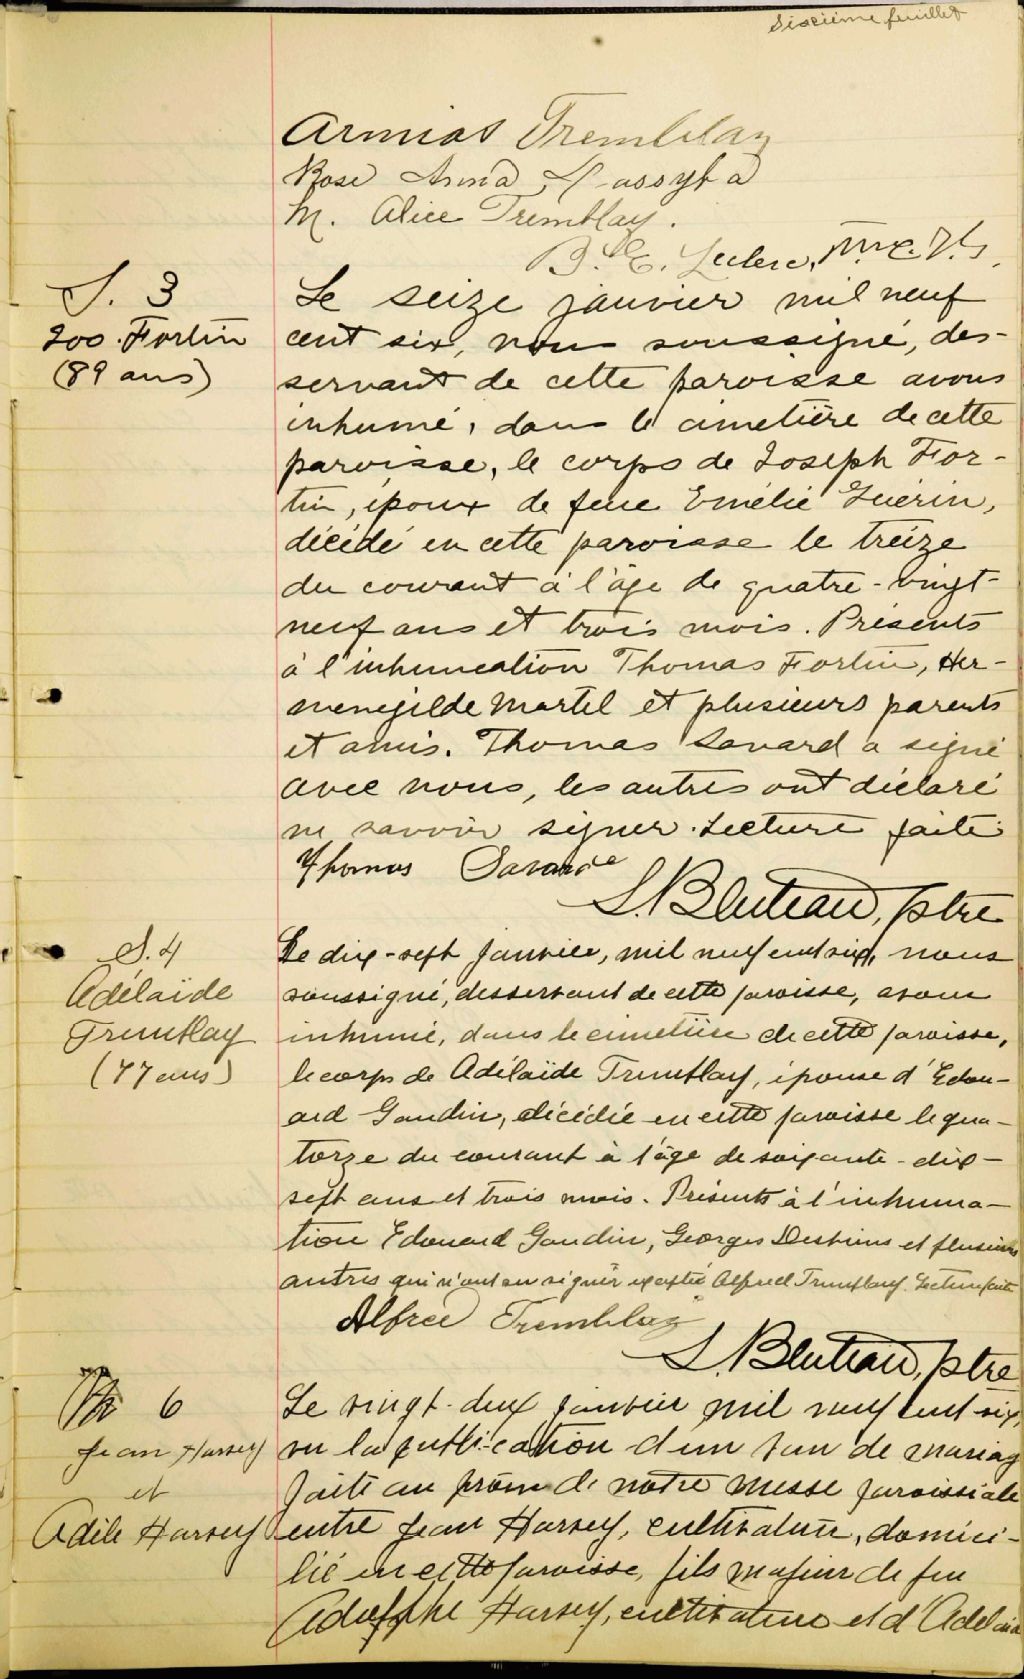 Sixième feuillet
Armias Tremblay
Rose Anna
M. Alice Tremblay.
B. E. Leclerc,
S. 3
Jos. Fortin
(89 ans)
Le seize janvier mil neuf
cent six, nous soussigné, des-
servant de cette paroisse avons
inhumé, dans le cimetière de cette
paroisse, le corps de Joseph For-
tin, époux de feue Emélie Guérin,
décédé en cette paroisse le treize
du courant à l'âge de quatre-vingt-
neuf ans et trois mois. Présents
à l'inhumation Thomas Fortin, Her-
menegilde Martel et plusieurs parents
et amis. Thomas Savard a signé
avec nous, les autres ont déclaré
ne savoir signer. Lecture faite.
Thomas Savard
L. Bluteau, ptre
S. 4
Adélaïde
Tremblay
(77 ans)
Le dix-sept janvier, mil neuf cent six, nous
soussigné, desservant de cette paroisse, avons
inhumé, dans le cimetière de cette paroisse,
le corps de Adélaïde Tremblay, épouse d'Edou-
ard Gaudin, décédée en cette paroisse le qua-
torze du courant à l'âge de soixante-dix-
sept ans et trois mois. Présents à l'inhuma-
tion Edouard Gaudin, Georges Desbiens et plusieurs
autres qui n'ont su signer excepté Alfred Tremblay. Lecture faite
Alfred Tremblay
L. Bluteau, ptre
6
Jean Harvey
et
Adèle Harvey
Le vingt-deux janvier mil neuf cent six,
vu la publication d'un ban de mariag
faite au prône de notre messe paroissiale
entre Jean Harvey, cultivateur, domici-
lié en cette paroisse, fils majeur de feu
Adolphe Harvey, cultivateur et d'Adelai